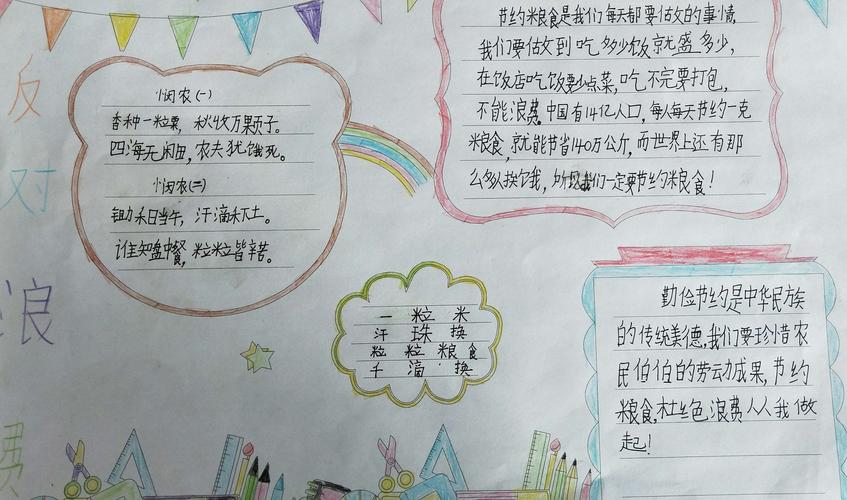 反
对
浪
费
悯农(一)
春种一粒粟, 秋收万颗子。
四海无闲田,农夫犹饿死。
悯农(二)
锄禾日当午, 汗滴禾下土。
谁知盘中餐, 粒粒皆辛苦。
节约粮食是我们每天都要做的事情,
我们要做到吃多少饭就盛多少,
在饭店吃饭要少点菜,吃不完要打包,
不能浪费。中国有14亿人口,每人每天节约一克
粮食,就能节省140万公斤,而世界上还有那
么多人挨饥饿,所以我们一定要节约粮食!
一粒米
汗珠换
粒粒粮食
千滴换
勤俭节约是中华民族
的传统美德,我们要珍惜农
民伯伯的劳动成果,节约
粮食,杜绝浪费人人我做
起!